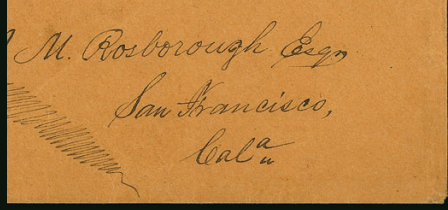 M. Rosborough Esqr
San Francisco,
Cala